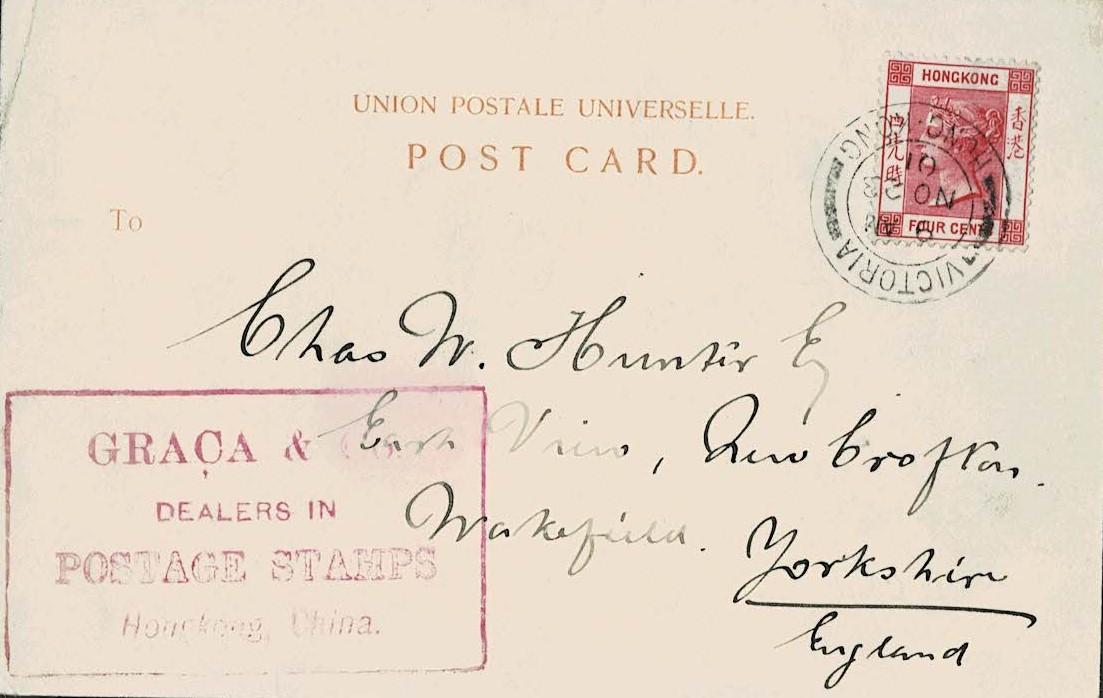 UNION POSTALE UNIVERSELLE.
POST CARD.
To
HONGKONG
香港
FOUR CENT
VICTORIA
HONG KONG
NO 23
01
Chas W. Hunter Eq
East View, New Crofton.
Wakefield.
Yorkshire
England
GRAÇA &
DEALERS IN
POSTAGE STAMPS
Hongkong, China.